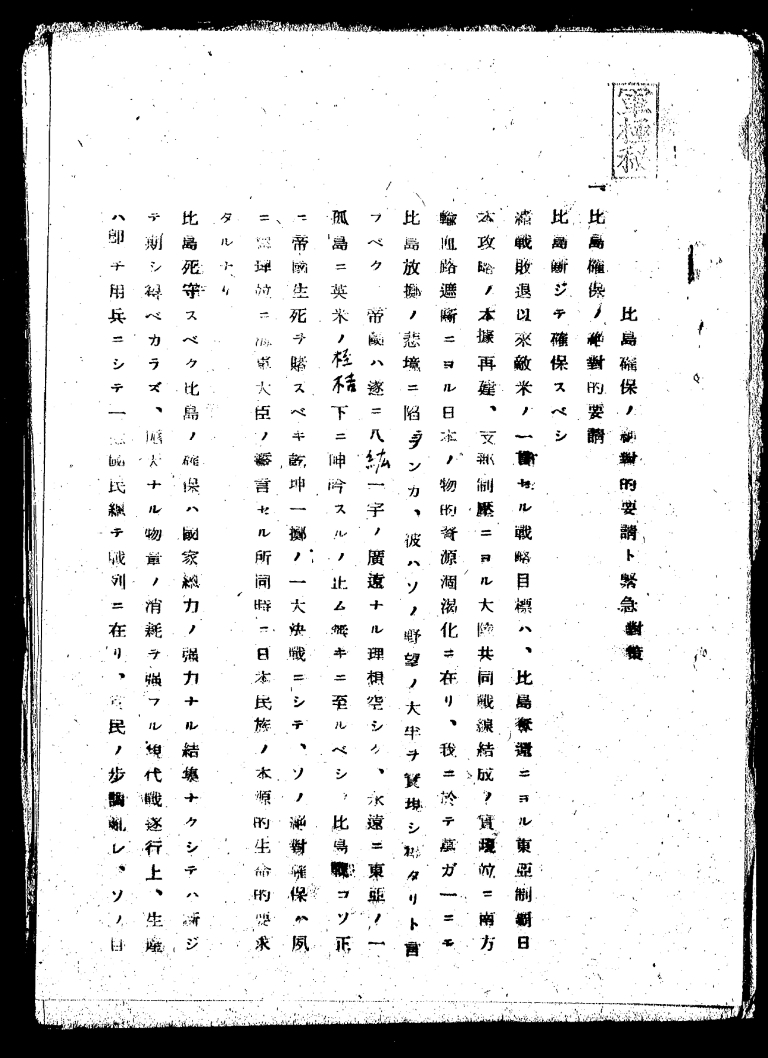 軍極秘
比島確保ノ絶對的要請ト緊急對策
一 比島確保ノ絶對的要請
比島斷ジテ確保スベシ
緒戰敗退以來敵米ノ一貫セル戰略目標ハ、比島奪還ニヨル東亞制覇日
本攻略ノ本據再建、支那制壓ニヨル大陸共同戰線結成ノ實現竝ニ南方
輸血路遮斷ニヨル日本ノ物的資源涸渇化ニ在リ、我ニ於テ萬ガ一ニモ
比島放擲ノ悲境ニ陷ランカ、彼ハソノ野望ノ大半ヲ實現シ得タリト言
フベク 帝國ハ遂ニ八紘一宇ノ廣遠ナル理想空シク、永遠ニ東亞ノ一
孤島ニ英米ノ桎梏下ニ呻吟スルノ止ム無キニ至ルベシ、比島戰コソ正
ニ帝國生死ヲ賭スベキ乾坤一擲ノ一大決戰ニシテ、ソノ絶對確保ハ夙
ニ總理竝ニ海軍大臣ノ言セル所同時ニ日本民族ノ本源的生命的要求
タルナリ
比島死守スベク比島ノ確保ハ國家總力ノ强力ナル結集ナクシテハ斷ジ
テ期シ得ベカラズ、厖大ナル物量ノ消耗ヲ强フル現代戰遂行上、生產
ハ卽チ用兵ニシテ一億國民總テ戰列ニ在リ、官民ノ步調亂レ、ソノ目